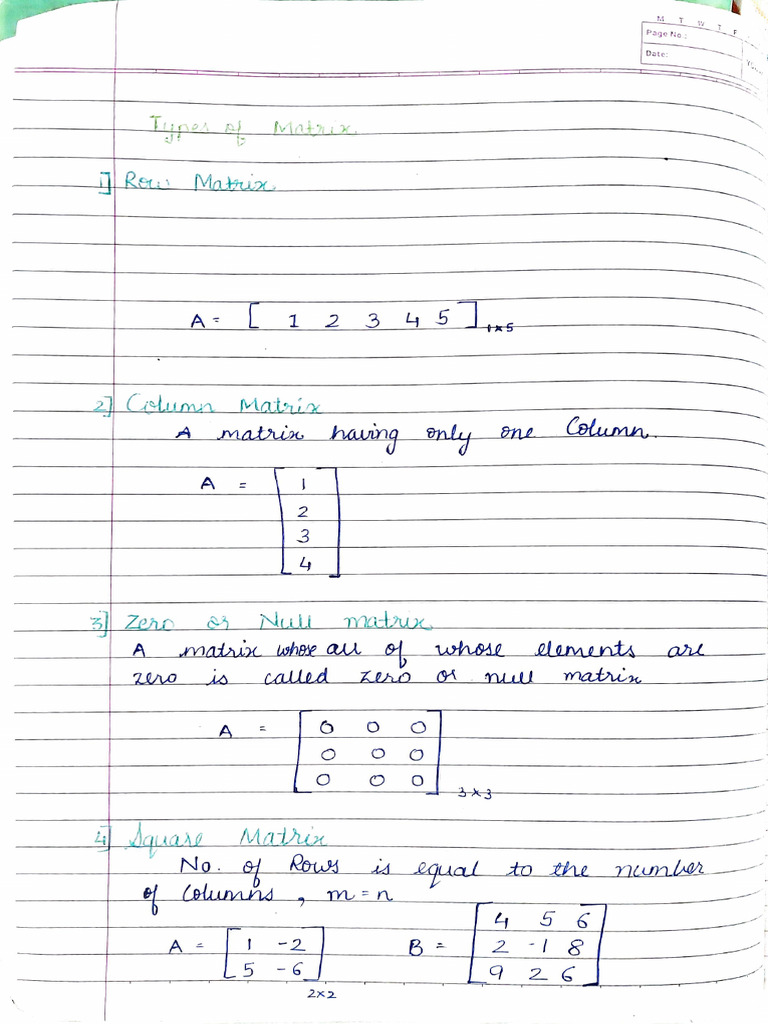 M T W T F
Page No.:
Date:
Types of Matrix
1] Row Matrix
A = [ 1 2 3 4 5 ] 1×5
2] Column Matrix
A matrix having only one Column.
A = [ 1
2
3
4 ]
3] Zero or Null matrix
A matrix whose all of whose elements are
zero is called zero or null matrix
A = [ 0 0 0
0 0 0
0 0 0 ] 3×3
4] Square Matrix
No. of Rows is equal to the number
of Columns, m=n
A = [ 1 -2
5 -6 ] 2×2
B = [ 4 5 6
2 -1 8
9 2 6 ]